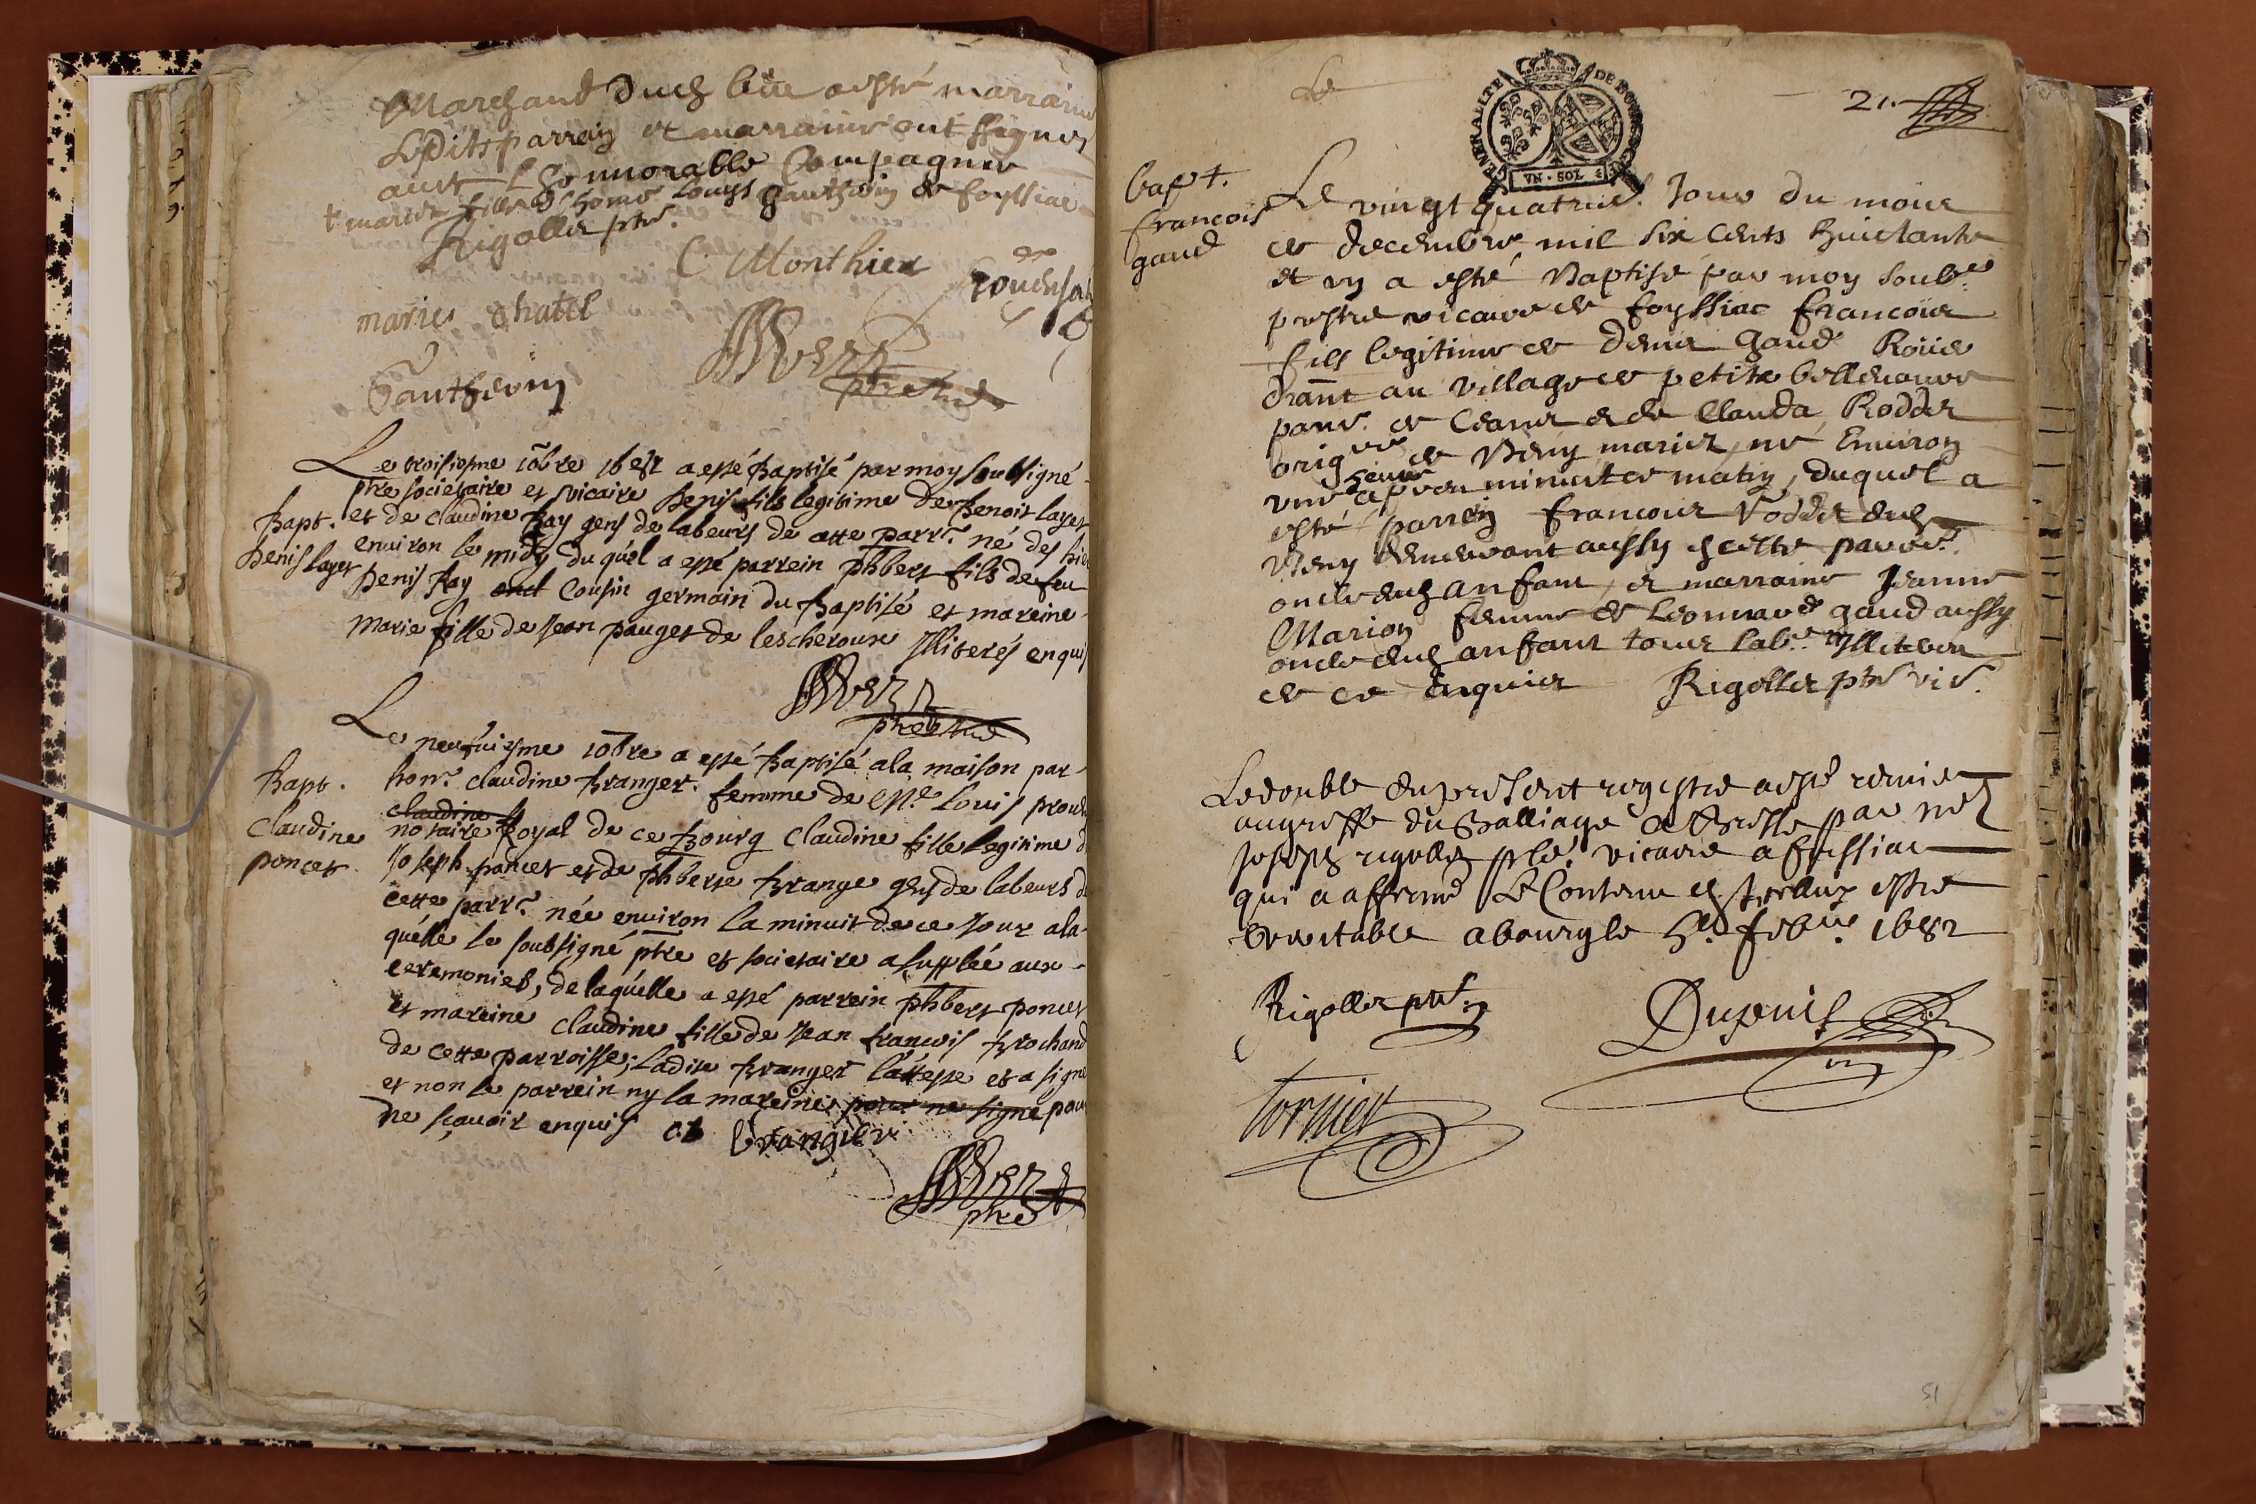 Marchand dud lieu a esté marraine
Lesdits parrein et marraine ont signez
avec L honnorable Compagnie
† marie fille d'hono Louys gauthein de foissiac
Rigollet ptre.
C Monthier
marie chatel
Gauthein
ptre
Le troisiesme 10bre 1681 a esté Baptisé par moy soubsigné
ptre societaire et vicaire Denis fils legitime de Benoit layet
Bapt.
Denis layet
et de claudine Ray gens de labeurs de cette parr. né des hier
environ le midy du quel a esté parrein phbert fils de feu
Denis Ray oncl Cousin germain du Baptisé et mareine
Marie fille de Jean pauget de lescheroux Illiterés enquis
ptre
Le neufuiesme 10bre a esté Baptisé a la maison par
Bapt.
Claudine
poncet
hon. claudine Branger. femme de Louis
claudine
notaire Royal de ce Bourg Claudine fille legitime d
Joseph poncet et de phberte Brange gens de labeurs de
cette parr. née environ la minuit de ce Jour a la
quelle le soubsigné ptre et societaire a supplée aux
ceremonies, de laquelle a esté parrein phbert poncet
et mareine Claudine fille de Jean francois Brochand
de cette parroisse; Ladite Branger et a signé
et non le parrein ny la mareine pour ne signé pour
ne sçavoir enquis
c. brangier
ptre
Le
GENERALITE DE BOURGOGNE
VN · SOL
21.
bapt.
francois
gaud
Le vingt quatrie. Jour du mois
de decembre mil six Cents huictante
et un a esté Baptisé par moy soub.
prestre vicaire de foyssiac francois
fils legitime de denis gaud
au village de petite bellevavre
parr. de et de Clauda Roddet
orig de Beny mariez, né Environ
une heure apres minuit matin, duquel a
esté parrein francois Roddet dud
Beny demeurant aussy en cette parr.
oncle dud anfant, et marraine Jeanne
Marion femme de Leonnard gaud aussy
oncle dud anfant tous lab. Illiterez
de ce enquis Rigollet ptre vic.
Le double du present registre a esté remis
au greffe du Balliage de Bresse par
Joseph rigollet ptre. vicaire a foissiac
qui a affirmé Le Contenu en Icelluy estre
veritable a bourg le feb. 1682
Rigollet ptre.
Dupuis
Tornier
51